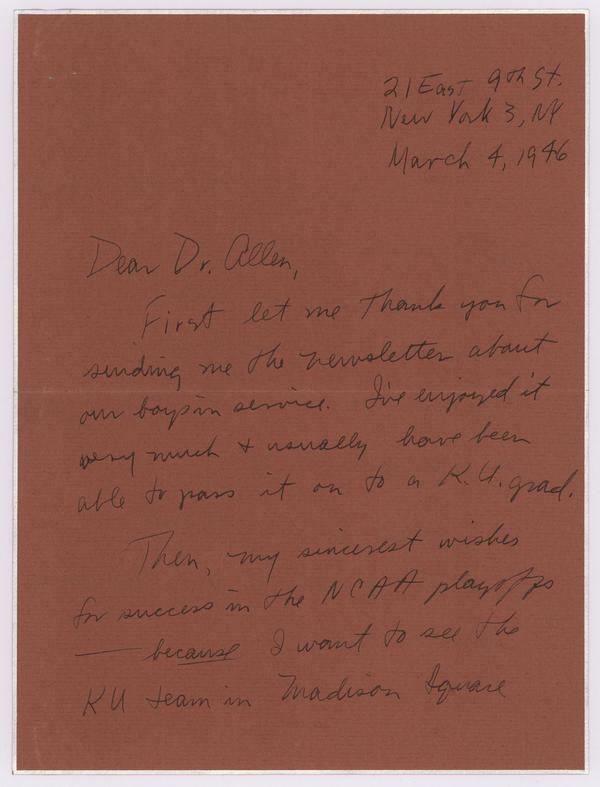 21 East 9th St.
New York 3, NY
March 4, 1946
Dear Dr. Allen,
First let me thank you for
sending me the newsletter about
our boys in service. I've enjoyed it
very much & usually have been
able to pass it on to a K.U. grad.
Then, my sincerest wishes
for success in the NCAA playoffs
— because I want to see the
KU team in Madison Square